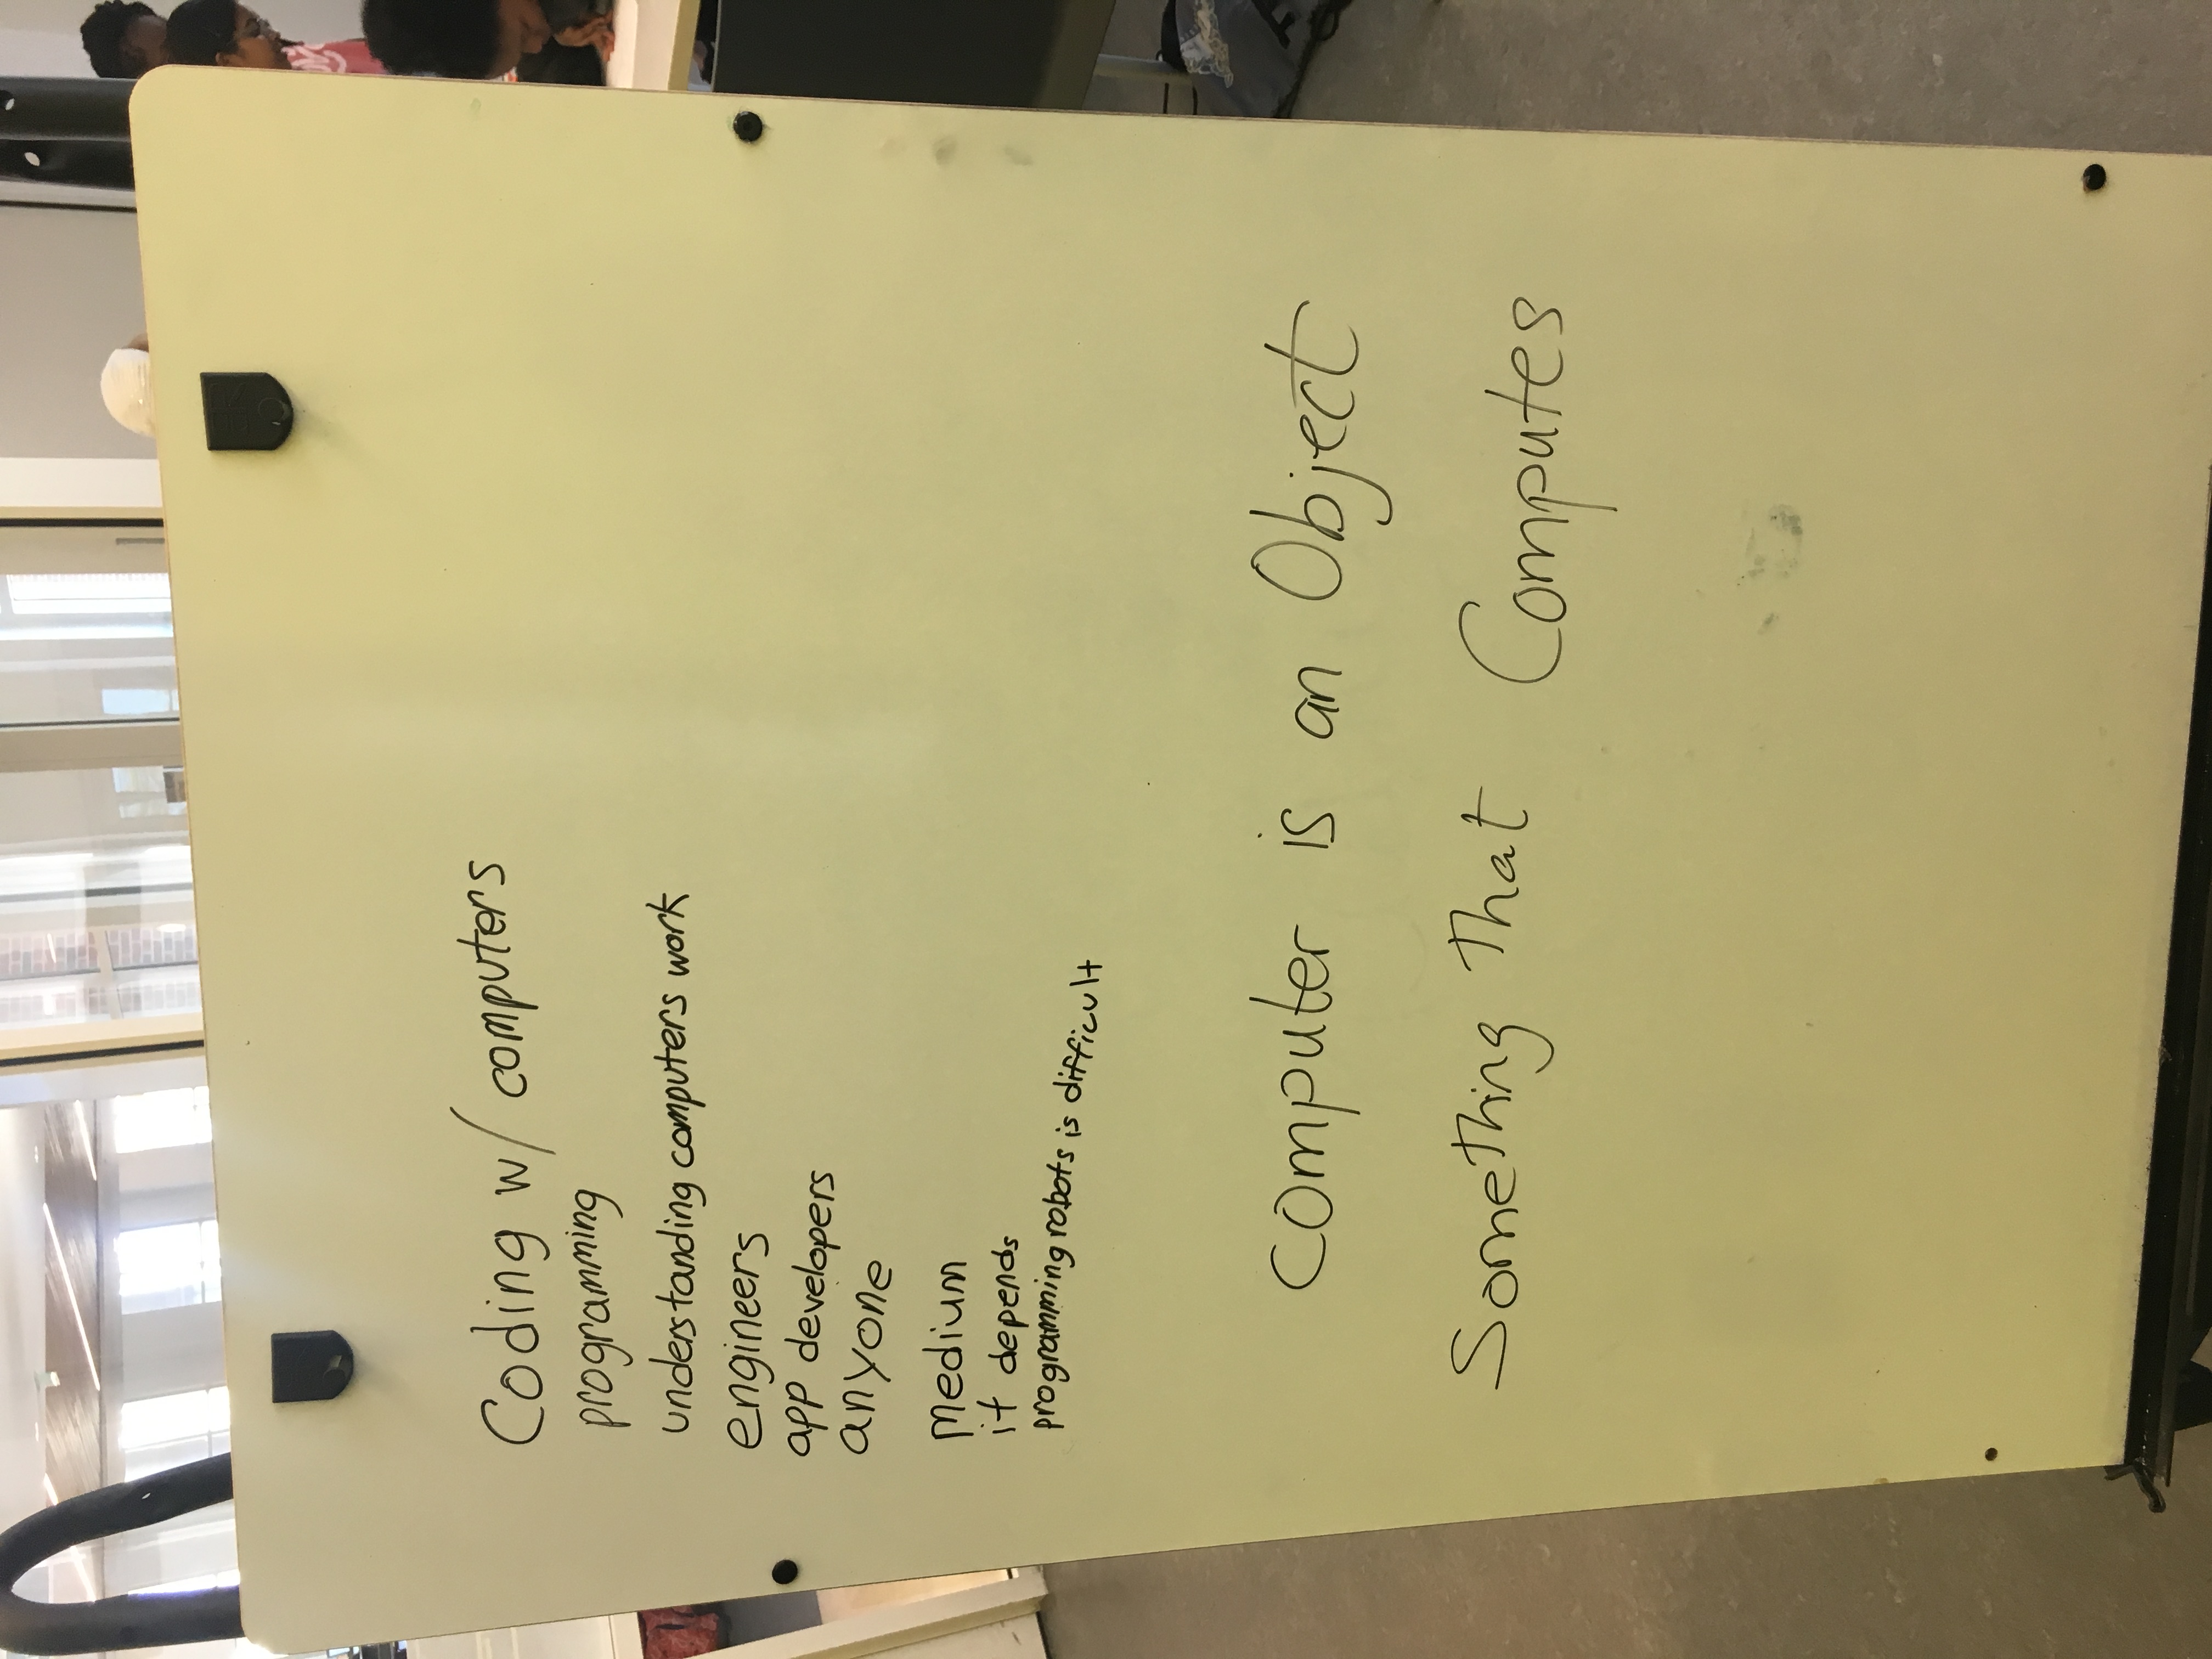 Coding w/ computers
programming
understanding computers work
engineers
app developers
anyone
medium
it depends
programming robots is difficult
Computer is an Object
Something That Computes